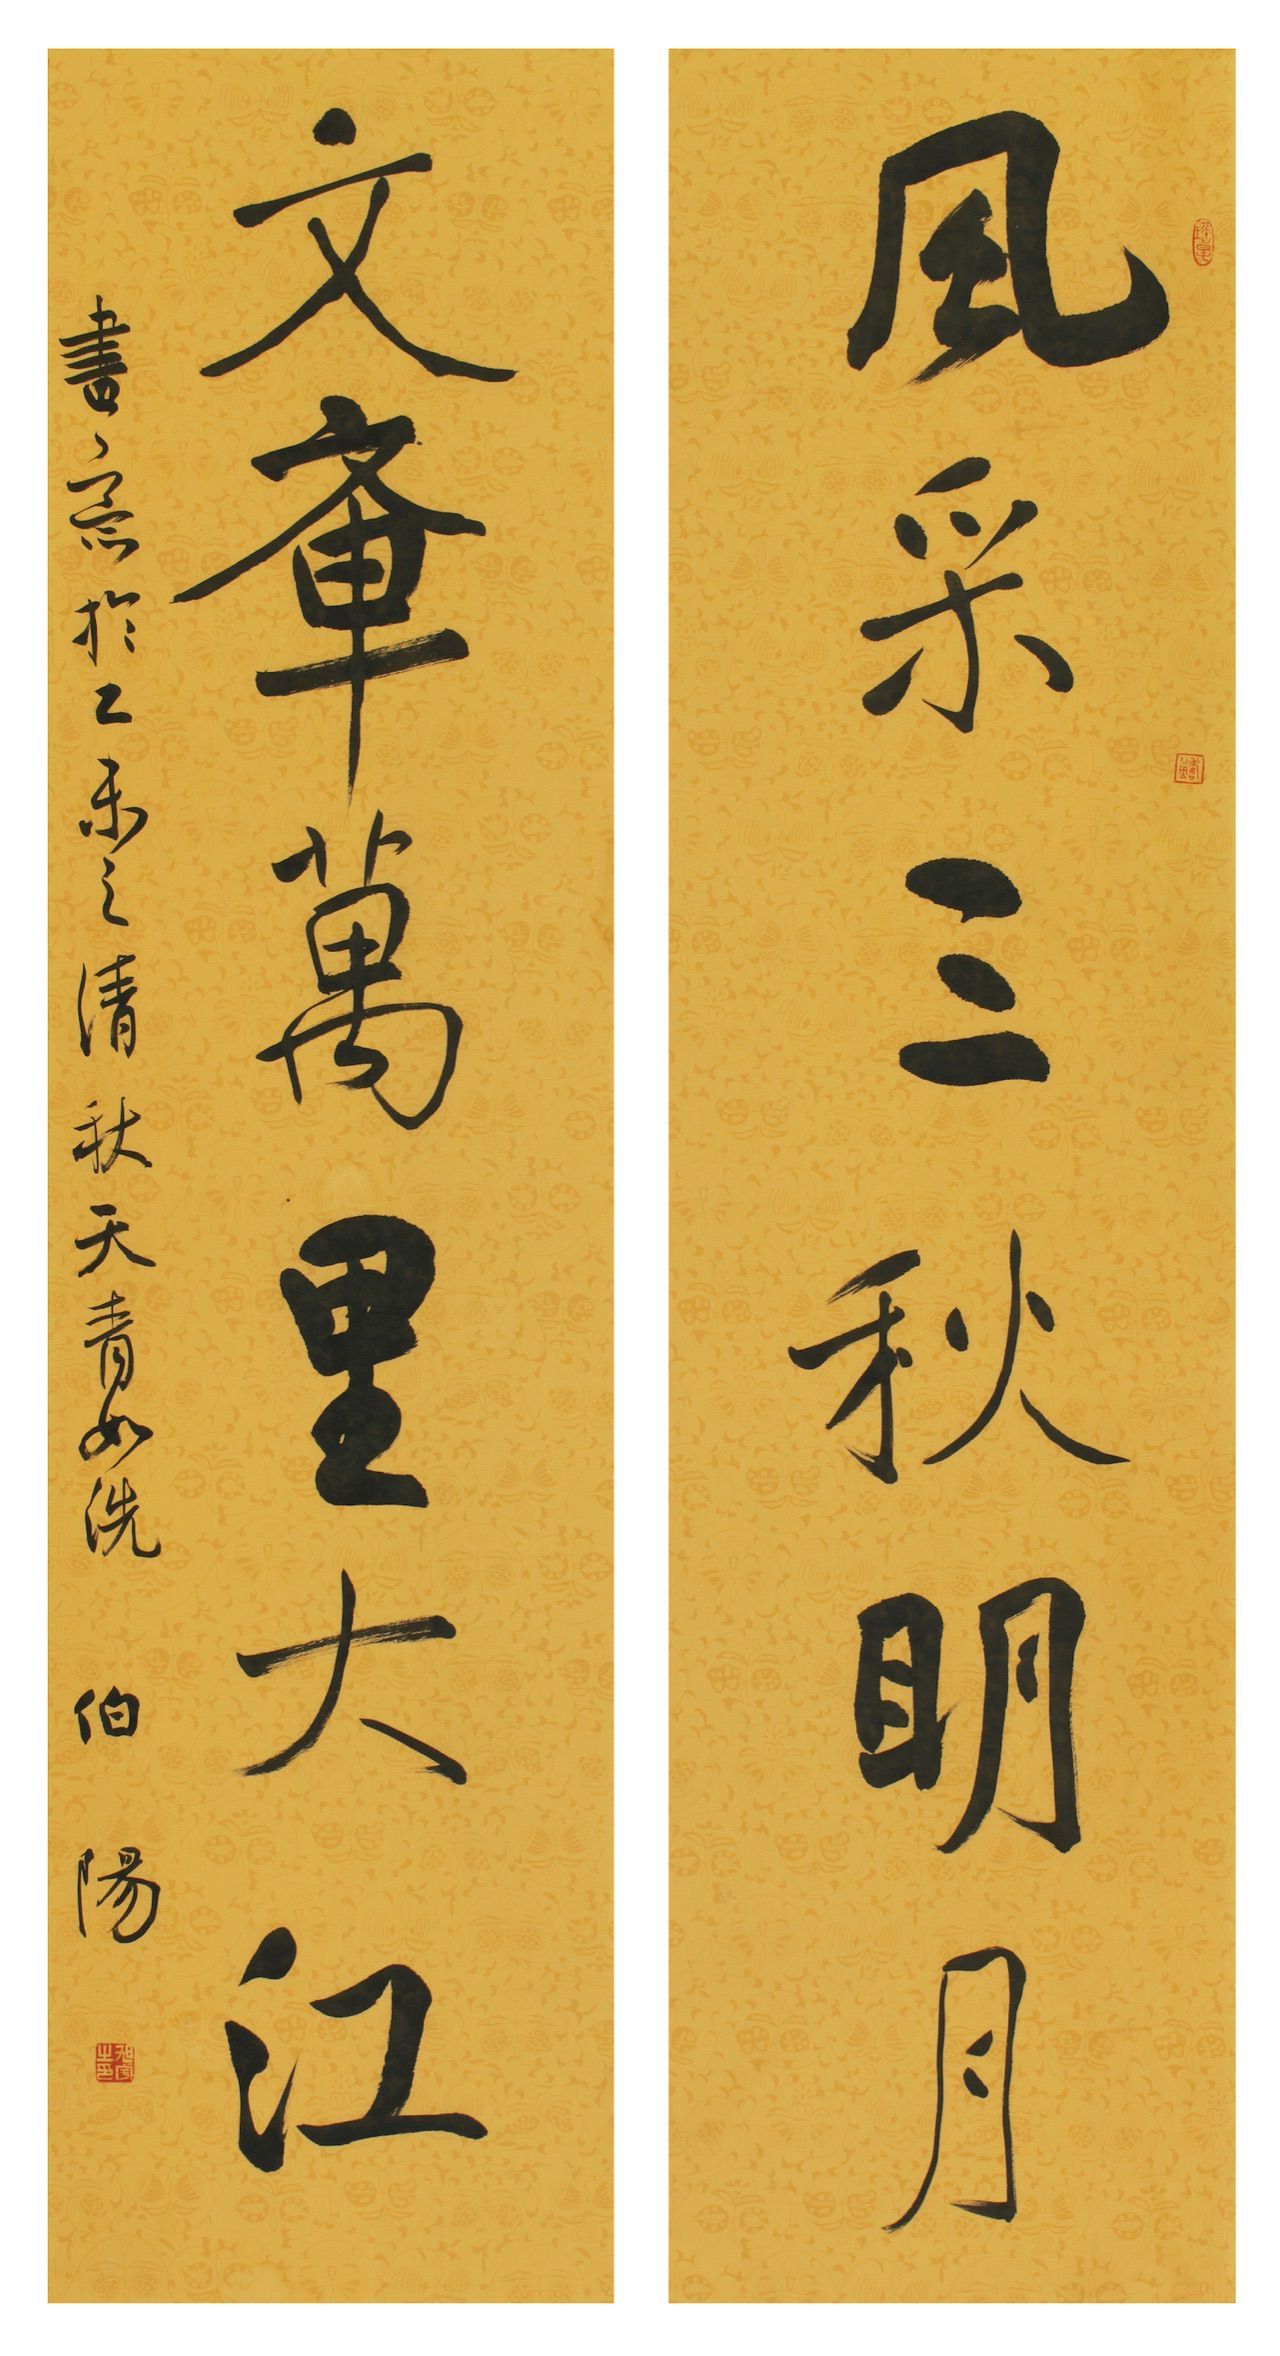 風采三秋明月
文章萬里大江
書於乙未之清秋天青如洗 伯陽
旭宇之印